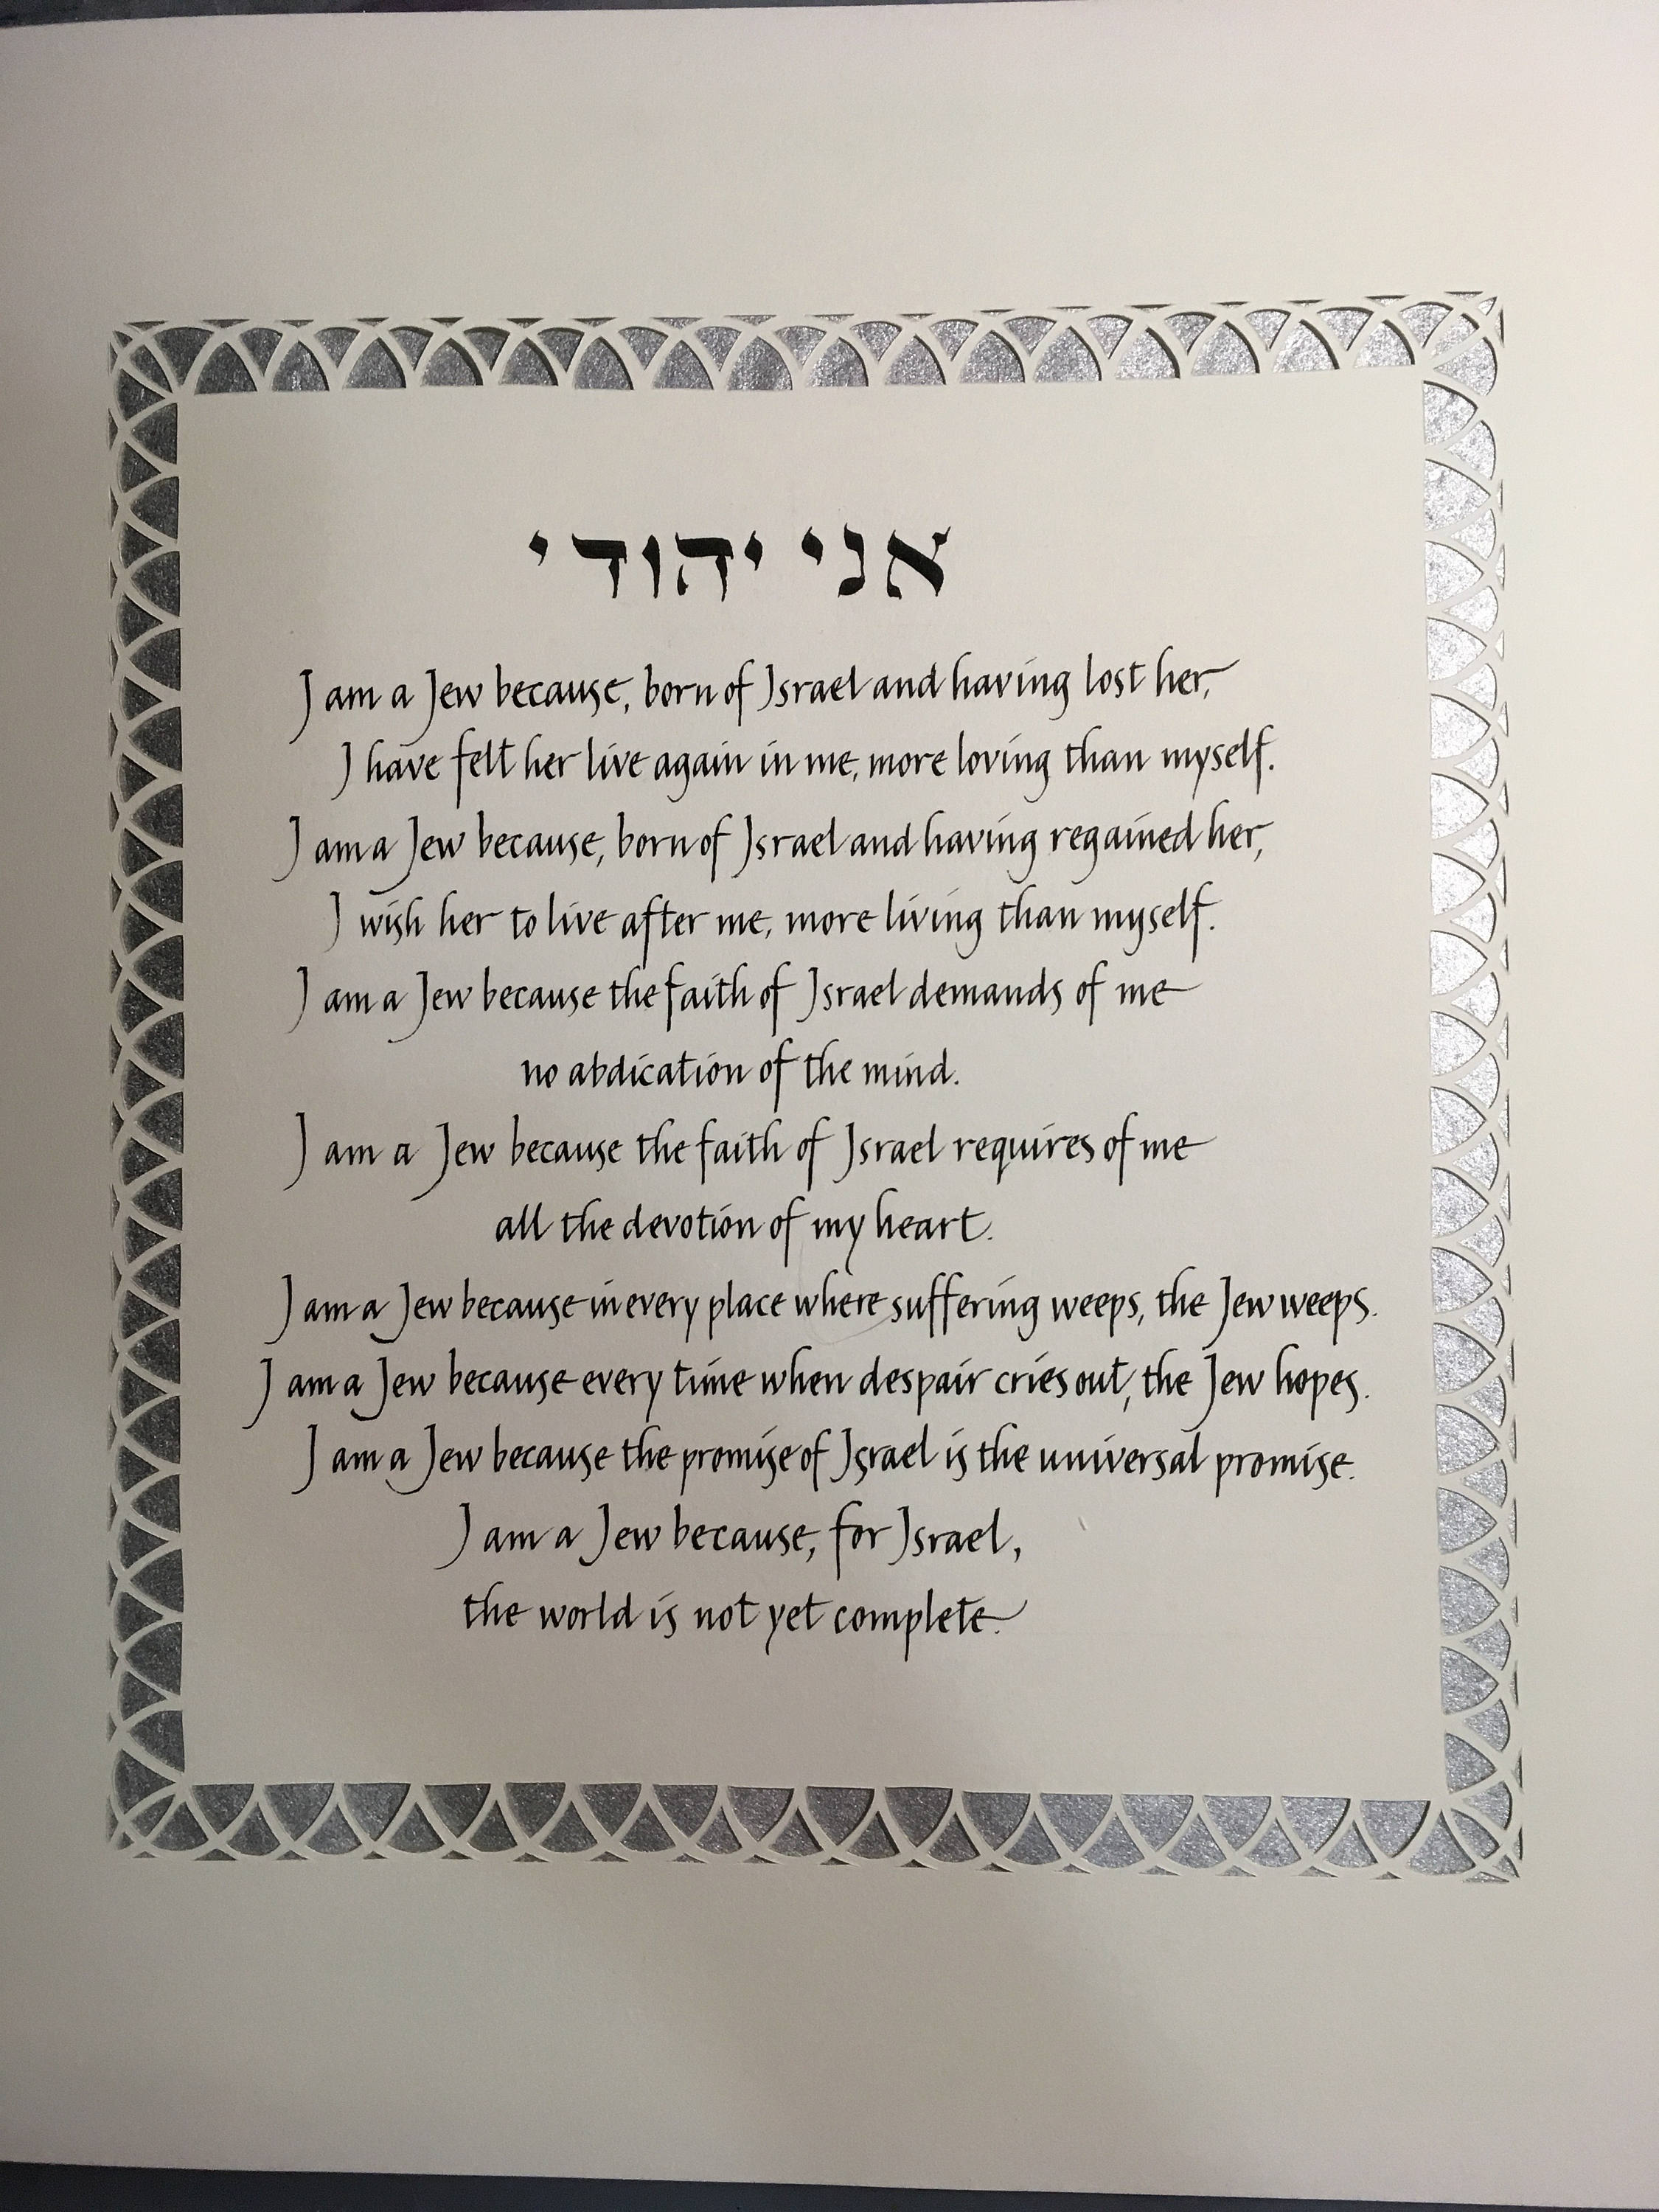 אני יהודי
I am a Jew because, born of Israel and having lost her,
I have felt her live again in me, more loving than myself.
I am a Jew because, born of Israel and having regained her,
I wish her to live after me, more living than myself.
I am a Jew because the faith of Israel demands of me
no abdication of the mind.
I am a Jew because the faith of Israel requires of me
all the devotion of my heart.
I am a Jew because in every place where suffering weeps, the Jew weeps.
I am a Jew because every time when despair cries out, the Jew hopes.
I am a Jew because the promise of Israel is the universal promise.
I am a Jew because, for Israel,
the world is not yet complete.